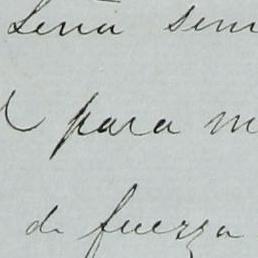 Leña sem
para m
de fuerza